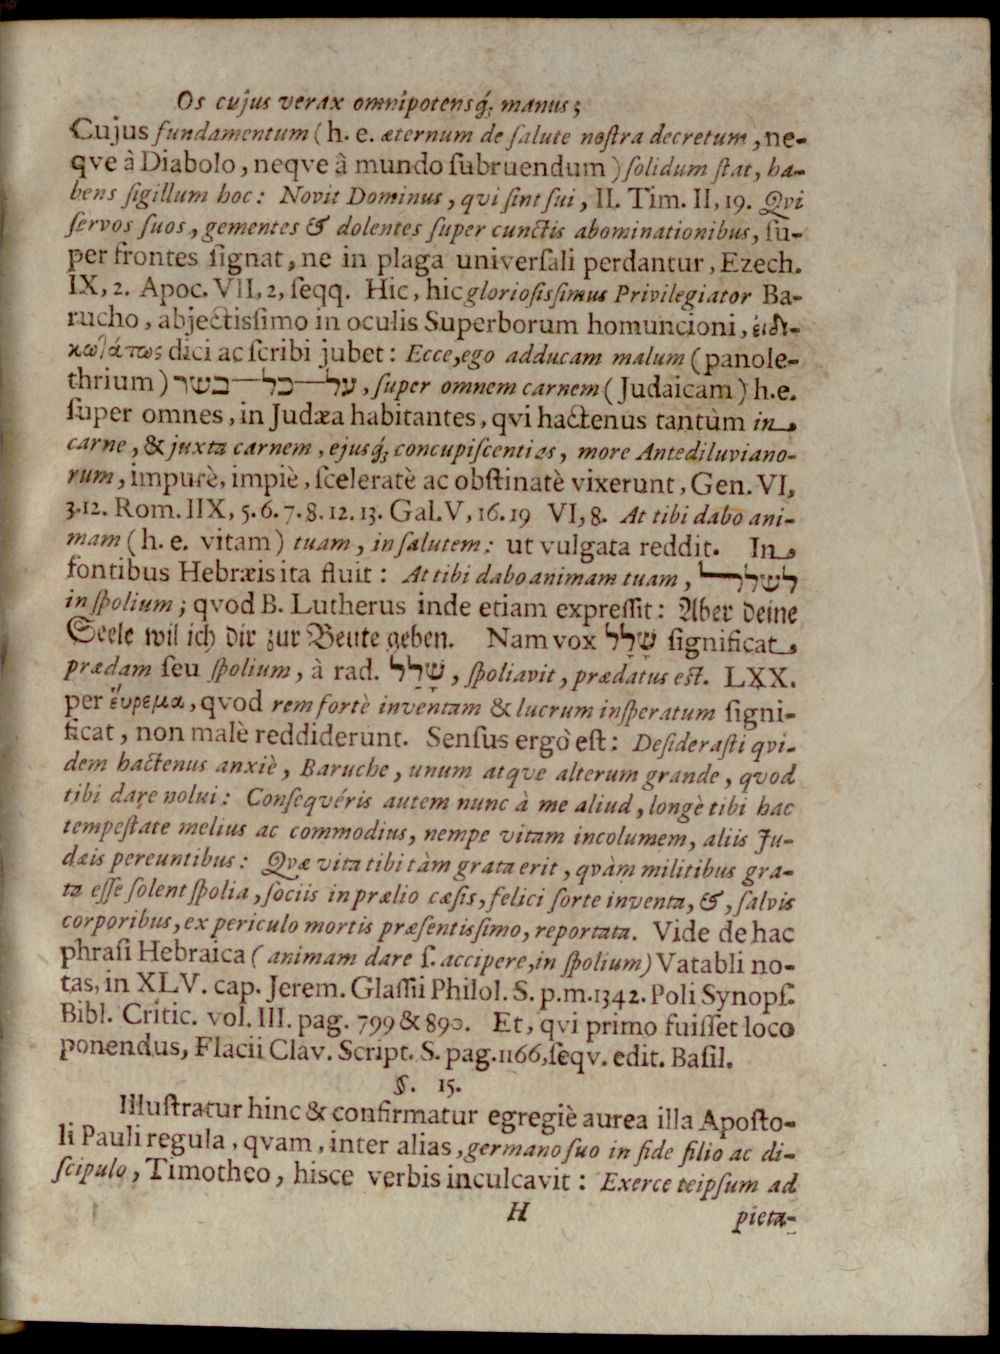 Os cujus verax omnipotensq́; manus;
Cujus fundamentum (h. e. æternum de ſalute noſtra decretum, ne-
qve à Diabolo, neqve à mundo ſubruendum) ſolidum ſtat, ha-
bens ſigillum hoc: Novit Dominus, qvi ſint ſui, II. Tim. II, 19. Qvi
ſervos ſuos, gementes & dolentes ſuper cunctis abominationibus, ſu-
per frontes ſignat, ne in plaga univerſali perdantur, Ezech.
IX, 2. Apoc. VII, 2, ſeqq. Hic, hic glorioſisſimus Privilegiator Ba-
rucho, abjectisſimo in oculis Superborum homuncioni,
dici ac ſcribi jubet: Ecce, ego adducam malum (panole-
thrium) על—כל—בשר, ſuper omnem carnem (Judaicam) h. e.
ſuper omnes, in Judæa habitantes, qvi hactenus tantùm in
carne, & juxta carnem, ejusq́; concupiſcentias, more Antediluviano-
rum, impurè, impiè, ſceleratè ac obſtinatè vixerunt, Gen. VI,
3.12. Rom. IIX, 5. 6. 7. 8. 12. 13. Gal. V, 16. 19 VI, 8. At tibi dabo ani-
mam (h. e. vitam) tuam, in ſalutem: ut vulgata reddit. In
fontibus Hebræis ita fluit: At tibi dabo animam tuam, לשלל
in ſpolium; qvod B. Lutherus inde etiam expreſſit: Aber deine
Seele wil ich dir zur Beute geben. Nam vox שָׁלָל ſignificat
prædam ſeu ſpolium, à rad. שָׁלַל, ſpoliavit, prædatus eſt. LXX.
per ἕυρεμα, qvod rem fortè inventam & lucrum inſperatum ſigni-
ficat, non malè reddiderunt. Senſus ergò eſt: Deſideraſti qvi-
dem hactenus anxiè, Baruche, unum atqve alterum grande, qvod
tibi dare nolui: Conſeqvéris autem nunc à me aliud, longè tibi hac
tempeſtate melius ac commodius, nempe vitam incolumem, aliis Ju-
dæis pereuntibus: Qvæ vita tibi tàm grata erit, qvàm militibus gra-
ta eſſe ſolent ſpolia, ſociis in prælio cæſis, felici ſorte inventa, &, ſalvis
corporibus, ex periculo mortis præſentisſimo, reportata. Vide de hac
phraſi Hebraica (animam dare ſ. accipere, in ſpolium) Vatabli no-
tas, in XLV. cap. Jerem. Glaſſii Philol. S. p. m. 1342. Poli Synopſ.
Bibl. Critic. vol. III. pag. 799 & 890. Et, qvi primo fuiſſet loco
ponendus, Flacii Clav. Script. S. pag. 1166, ſeqv. edit. Baſil.
§. 15.
Illuſtratur hinc & confirmatur egregiè aurea illa Apoſto-
li Pauli regula, qvam, inter alias, germano ſuo in fide filio ac di-
ſcipulo, Timotheo, hisce verbis inculcavit: Exerce teipſum ad
H
pieta-